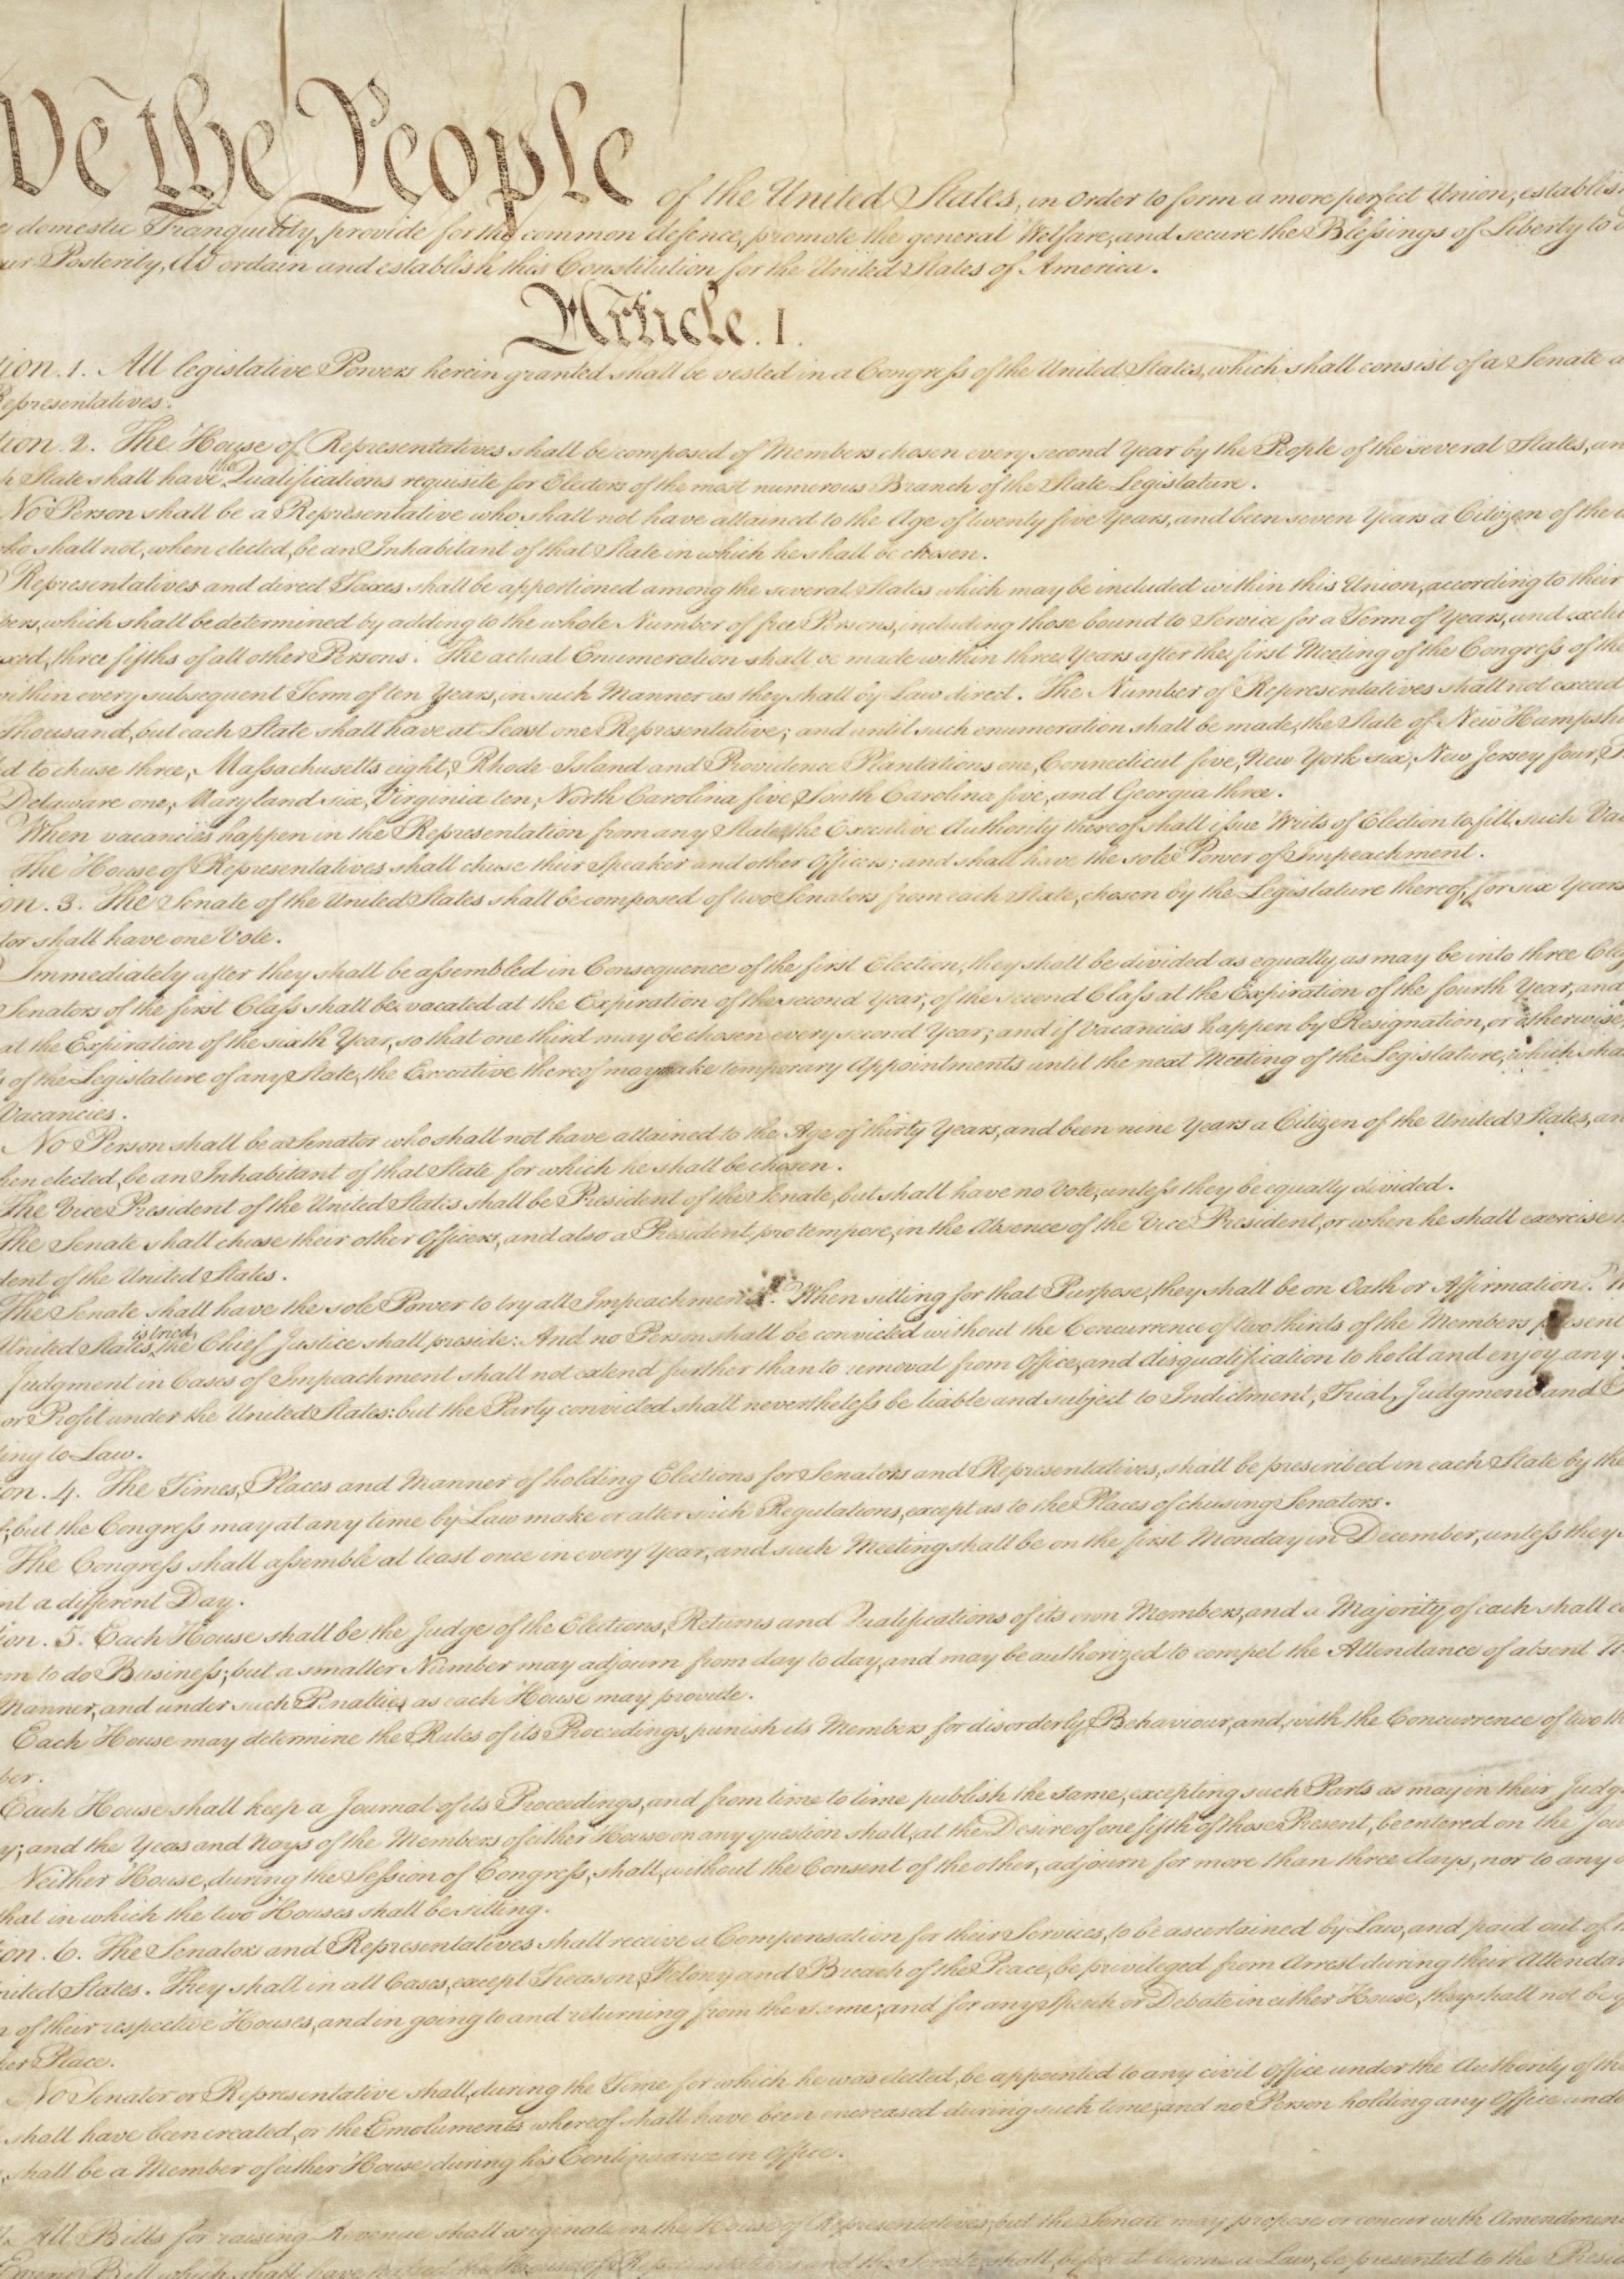 We the People of the United States, in Order to form a more perfect Union, establis
e domestic Tranquility, provide for the common defence, promote the general Welfare, and secure the Blessings of Liberty to o
ur Posterity, do ordain and establish this Constitution for the United States of America.
Article. I.
tion. 1. All legislative Powers herein granted shall be vested in a Congress of the United States, which shall consist of a Senate a
Representatives.
tion. 2. The House of Representatives shall be composed of Members chosen every second Year by the People of the several States, an
h State shall have the Qualifications requisite for Electors of the most numerous Branch of the State Legislature.
No Person shall be a Representative who shall not have attained to the Age of twenty five Years, and been seven Years a Citizen of the U
ho shall not, when elected, be an Inhabitant of that State in which he shall be chosen.
Representatives and direct Taxes shall be apportioned among the several States which may be included within this Union, according to their
bers, which shall be determined by adding to the whole Number of free Persons, including those bound to Service for a Term of Years, and exclu
xed, three fifths of all other Persons. The actual Enumeration shall be made within three Years after the first Meeting of the Congress of the
within every subsequent Term of ten Years, in such Manner as they shall by Law direct. The Number of Representatives shall not exceed
Thousand, but each State shall have at Least one Representative; and until such enumeration shall be made, the State of New Hampshi
d to chuse three, Massachusetts eight, Rhode-Island and Providence Plantations one, Connecticut five, New-York six, New Jersey four, P
Delaware one, Maryland six, Virginia ten, North Carolina five, South Carolina five, and Georgia three.
When vacancies happen in the Representation from any State, the Executive Authority thereof shall issue Writs of Election to fill such Vac
The House of Representatives shall chuse their Speaker and other Officers; and shall have the sole Power of Impeachment.
on. 3. The Senate of the United States shall be composed of two Senators from each State, chosen by the Legislature thereof, for six Years
tor shall have one Vote.
Immediately after they shall be assembled in Consequence of the first Election, they shall be divided as equally as may be into three Clas
Senators of the first Class shall be vacated at the Expiration of the second Year, of the second Class at the Expiration of the fourth Year, and
at the Expiration of the sixth Year, so that one third may be chosen every second Year; and if Vacancies happen by Resignation, or otherwise,
s of the Legislature of any State, the Executive thereof may make temporary Appointments until the next Meeting of the Legislature, which sha
Vacancies.
No Person shall be a Senator who shall not have attained to the Age of thirty Years, and been nine Years a Citizen of the United States, an
hen elected, be an Inhabitant of that State for which he shall be chosen.
The Vice President of the United States shall be President of the Senate, but shall have no Vote, unless they be equally divided.
The Senate shall chuse their other Officers, and also a President pro tempore, in the Absence of the Vice President, or when he shall exercise
dent of the United States.
The Senate shall have the sole Power to try all Impeachments. When sitting for that Purpose, they shall be on Oath or Affirmation.
United States is tried, the Chief Justice shall preside: And no Person shall be convicted without the Concurrence of two thirds of the Members present
Judgment in Cases of Impeachment shall not extend further than to removal from Office, and disqualification to hold and enjoy any
or Profit under the United States: but the Party convicted shall nevertheless be liable and subject to Indictment, Trial, Judgment and
ding to Law.
on. 4. The Times, Places and Manner of holding Elections for Senators and Representatives, shall be prescribed in each State by the
f; but the Congress may at any time by Law make or alter such Regulations, except as to the Places of chusing Senators.
The Congress shall assemble at least once in every Year, and such Meeting shall be on the first Monday in December, unless they
nt a different Day.
ion. 5. Each House shall be the Judge of the Elections, Returns and Qualifications of its own Members, and a Majority of each shall co
um to do Business; but a smaller Number may adjourn from day to day, and may be authorized to compel the Attendance of absent
Manner, and under such Penalties as each House may provide.
Each House may determine the Rules of its Proceedings, punish its Members for disorderly Behaviour, and, with the Concurrence of two th
ber.
Each House shall keep a Journal of its Proceedings, and from time to time publish the same, excepting such Parts as may in their Judg
y; and the Yeas and Nays of the Members of either House on any question shall, at the Desire of one fifth of those Present, be entered on the Jou
Neither House, during the Session of Congress, shall, without the Consent of the other, adjourn for more than three days, nor to any o
that in which the two Houses shall be sitting.
ion. 6. The Senators and Representatives shall receive a Compensation for their Services, to be ascertained by Law, and paid out of
nited States. They shall in all Cases, except Treason, Felony and Breach of the Peace, be privileged from Arrest during their Attendan
n of their respective Houses, and in going to and returning from the same; and for any Speech or Debate in either House, they shall not be q
her Place.
No Senator or Representative shall, during the Time for which he was elected, be appointed to any civil Office under the Authority of the
shall have been created, or the Emoluments whereof shall have been encreased during such time; and no Person holding any Office unde
shall be a Member of either House during his Continuance in Office.
All Bills for raising Revenue shall originate in the House of Representatives; but the Senate may propose or concur with Amendmen
Every Bill which shall have passed the House of Representatives and the Senate, shall, before it become a Law, be presented to the Presid